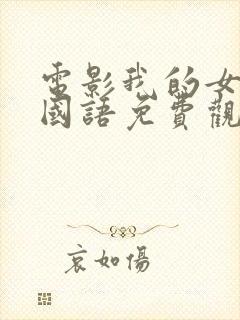 電影我的女
國語免費觀
哀如傷